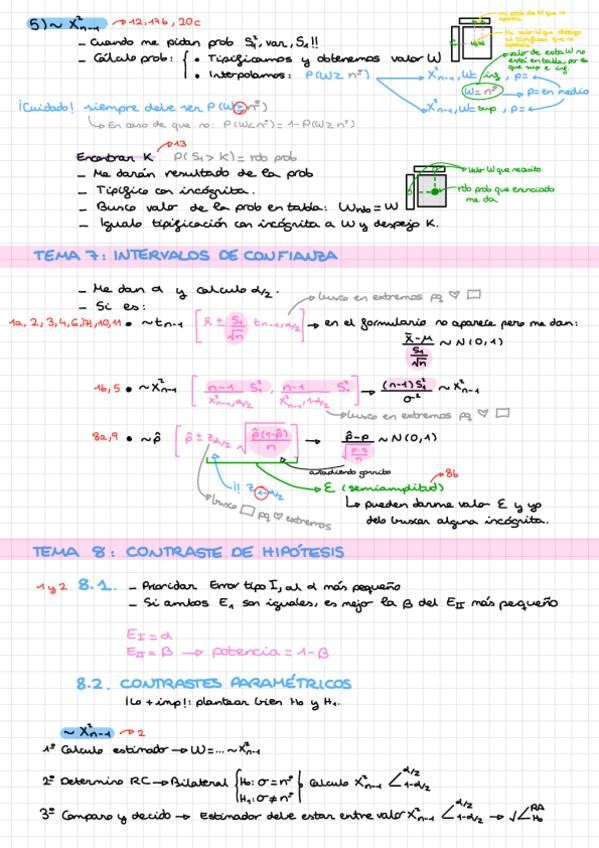 5) ~ X²n-1 → 12, 17b, 20c
- Cuando me pidan prob S₁², var, S₁!!
- Cálculo prob: { • Tipificamos y obtenemos valor W
• Interpolamos: P(W≥ nº)
X²n-1, W= inf, p=
W= nº → p= en medio
X²n-1, W= sup, p=
valor de esta W no
¡Cuidado! siempre debe ser P(W≥nº)
↳ En caso de que no: P(W<nº)=1-P(W≥nº)
Encontrar K → 13 P(S₁>K)= rdo prob
- Me darán resultado de la prob
- Tipifico con incógnita.
- Busco valor de la prob en tabla: Wrdo = W
- Igualo tipificación con incógnita a W y despejo K.
valor W que necesito
rdo prob que enunciado
me da
TEMA 7: INTERVALOS DE CONFIANZA
- Me dan α y calculo α/2.
- Si es:
busco en extremos pq ♡ □
• ~tn-1 [x̄ ± S₁/√n tn-1,α/2] → en el formulario no aparece pero me dan:
(x̄-μ)/(S₁/√n) ~ N(0,1)
1b, 5 • ~X²n-1 [n-1/X²n-1,α/2 S₁², n-1/X²n-1,1-α/2 S₁²] → (n-1)S₁²/σ² ~ X²n-1
busco en extremos pq ♡ □
8a, 9 • ~p̂ [p̂ ± z α/2 √(p̂(1-p̂)/n)] → (p̂-p)/√(p·q/n) ~ N(0,1)
añadiendo gorrito
¡! Z 1-α/2
E (semiamplitud) → 8b
busco □ pq ♡ extremos
↳ pueden darme valor E y yo
debo buscar alguna incógnita.
TEMA 8: CONTRASTE DE HIPÓTESIS
1 y 2 8.1. - Priorizar Error tipo I, al α más pequeño
- Si ambos E₁ son iguales, es mejor la β del EII más pequeño
EI = α
EII = β → potencia = 1-β
8.2. CONTRASTES PARAMÉTRICOS
¡Lo + imp!: plantear bien H₀ y H₁.
~ X²n-1 → 2
1º Calculo estimador → W=... ~ X²n-1
2º Determino RC → Bilateral {H₀: σ = nº H₁: σ ≠ nº} Calculo X²n-1 < α/2 1-α/2
3º Comparo y decido → Estimador debe estar entre valor X²n-1 < α/2 1-α/2 → √< RA H₀